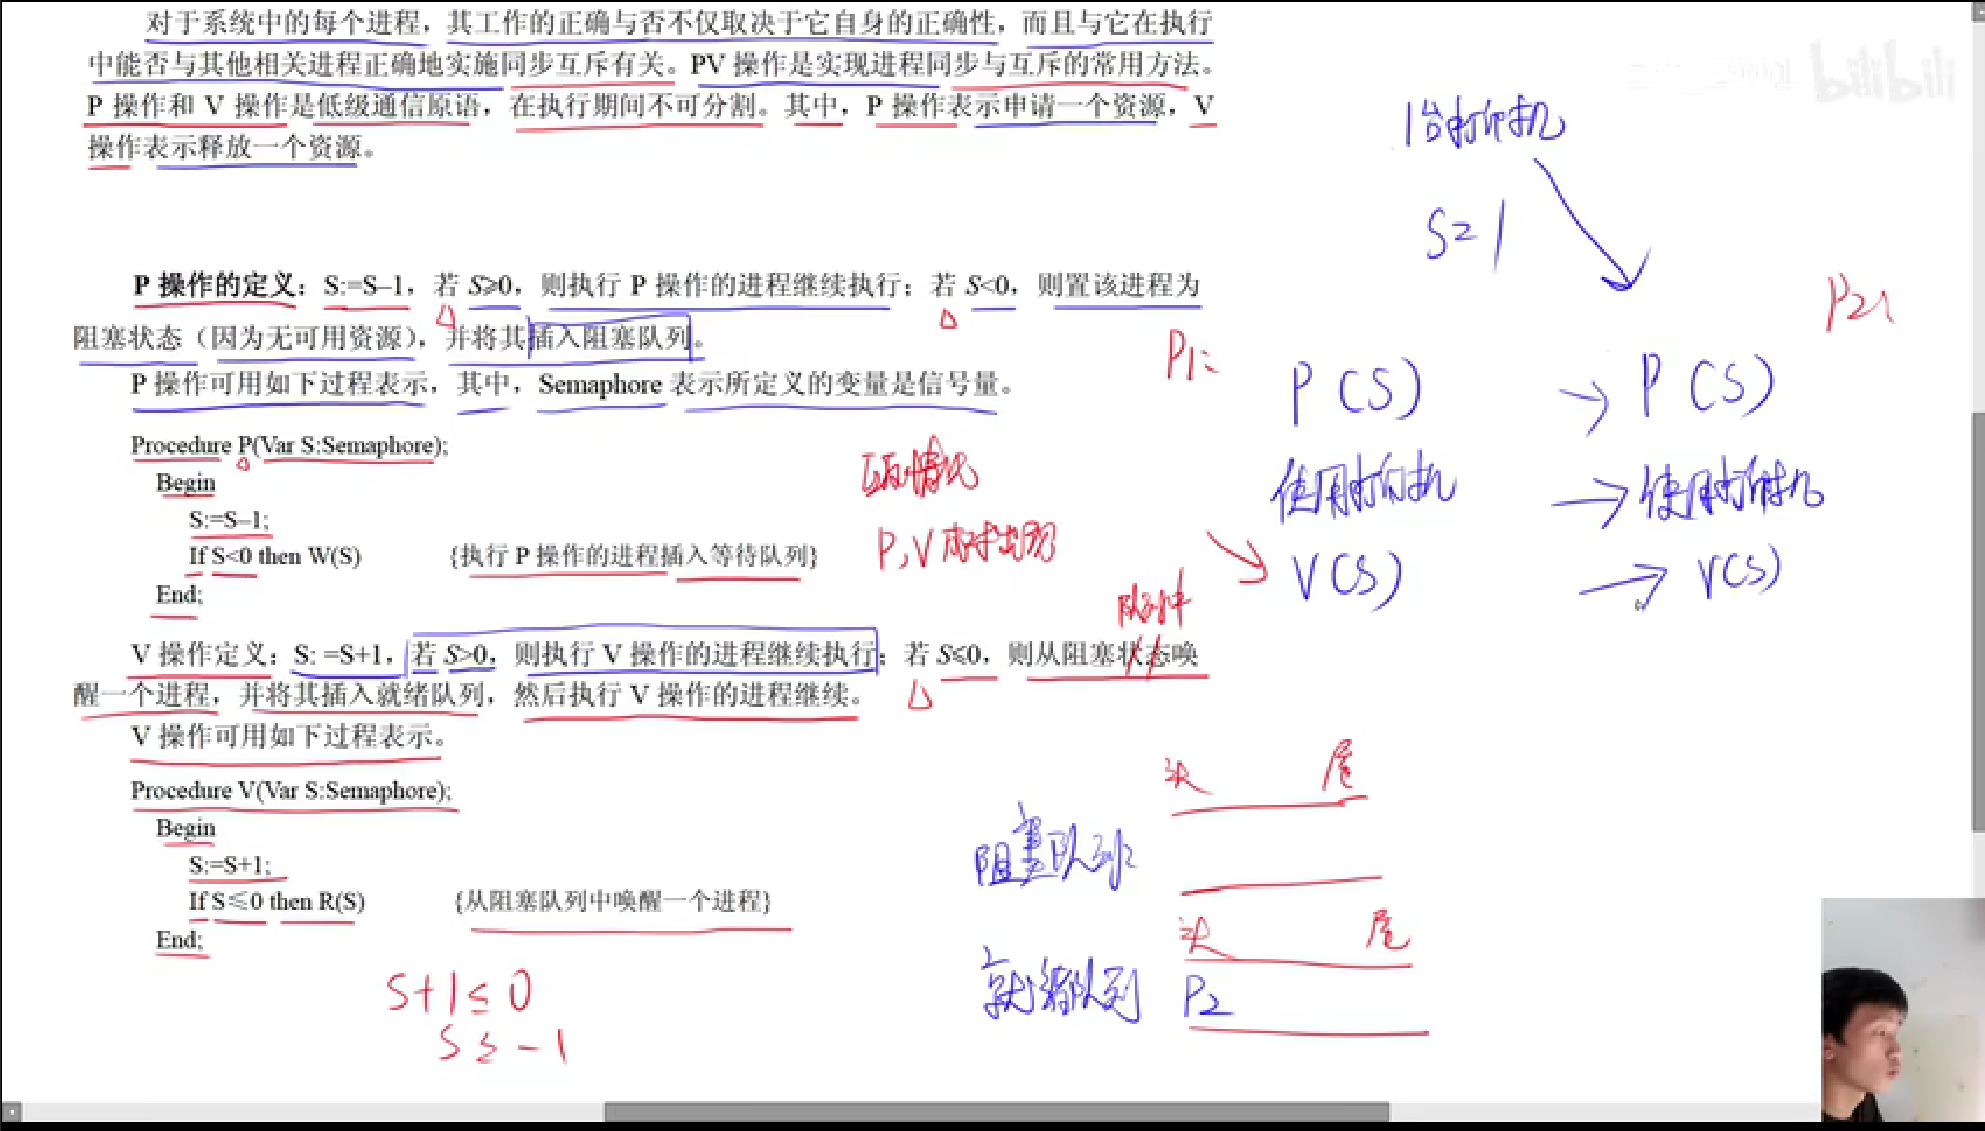 对于系统中的每个进程，其工作的正确与否不仅取决于它自身的正确性，而且与它在执行
中能否与其他相关进程正确地实施同步互斥有关。PV 操作是实现进程同步与互斥的常用方法。
P 操作和 V 操作是低级通信原语，在执行期间不可分割。其中，P 操作表示申请一个资源，V
操作表示释放一个资源。
bilibili
1台打印机
S=1
P 操作的定义：S:=S–1，若 S≥0，则执行 P 操作的进程继续执行；若 S<0，则置该进程为
阻塞状态（因为无可用资源），并将其插入阻塞队列。
P 操作可用如下过程表示，其中，Semaphore 表示所定义的变量是信号量。
Procedure P(Var S:Semaphore);
Begin
S:=S–1;
If S<0 then W(S) {执行 P 操作的进程插入等待队列}
End;
P1:
P2:
P(S) → P(S)
使用打印机 → 使用打印机
V(S) → V(S)
P,V 成对出现
队列中
V 操作定义：S: =S+1，若 S>0，则执行 V 操作的进程继续执行；若 S≤0，则从阻塞状态唤
醒一个进程，并将其插入就绪队列，然后执行 V 操作的进程继续。
V 操作可用如下过程表示。
Procedure V(Var S:Semaphore);
Begin
S:=S+1;
If S≤0 then R(S) {从阻塞队列中唤醒一个进程}
End;
S+1≤0
头 尾
阻塞队列
头 尾
就绪队列 P2